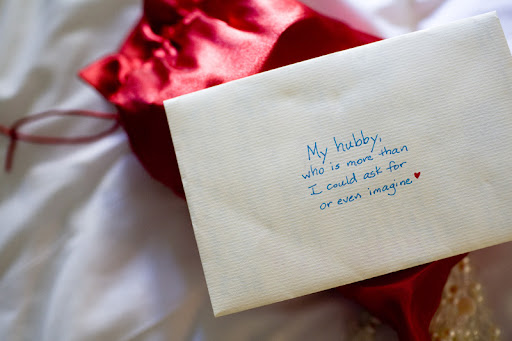 My hubby,
who is more than
I could ask for
or even imagine.